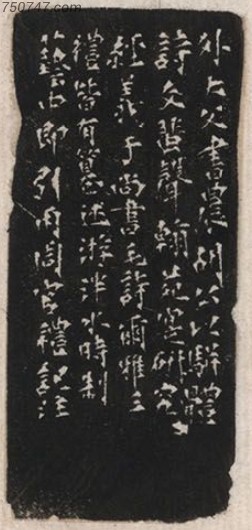 750747.com
外大父書農胡公以駢體
詩文蜚聲翰苑寔研究
經義于尚書毛詩爾雅三
禮皆有篹述游泮水時制
藝中即引用周官禮記注